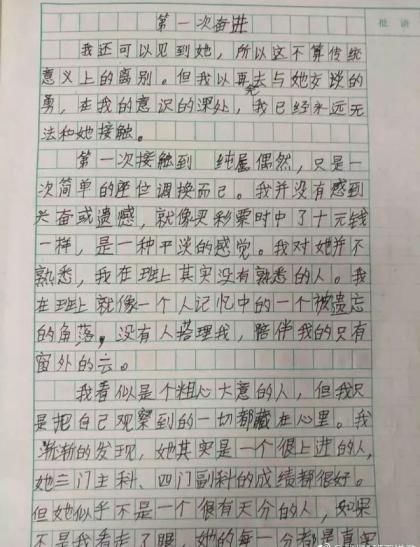 第一次奋进
批语
我还可以见到她，所以这不算传统
意义上的离别。但我以再无去与她交谈的
勇，在我的意识的深处，我已经永远无
法和她接触。
第一次接触到 纯属偶然，只是一
次简单的座位调换而已。我并没有感到
兴奋或遗憾，就像买彩票时中了十元钱
一样，是一种平淡的感觉。我对她并不
熟悉，我在班上其实没有熟悉的人。我
在班上就像一个人记忆中的一个被遗忘
的角落，没有人搭理我，陪伴我的只有
窗外的云。
我看似是个粗心大意的人，但我只
是把自己观察到的一切都藏在心里。我
渐渐的发现，她其实是一个很上进的人，
她三门主科、四门副科的成绩都很好。
但她似乎不是一个很有天分的人，如果
不是我看走了眼，她的每一分都是真实